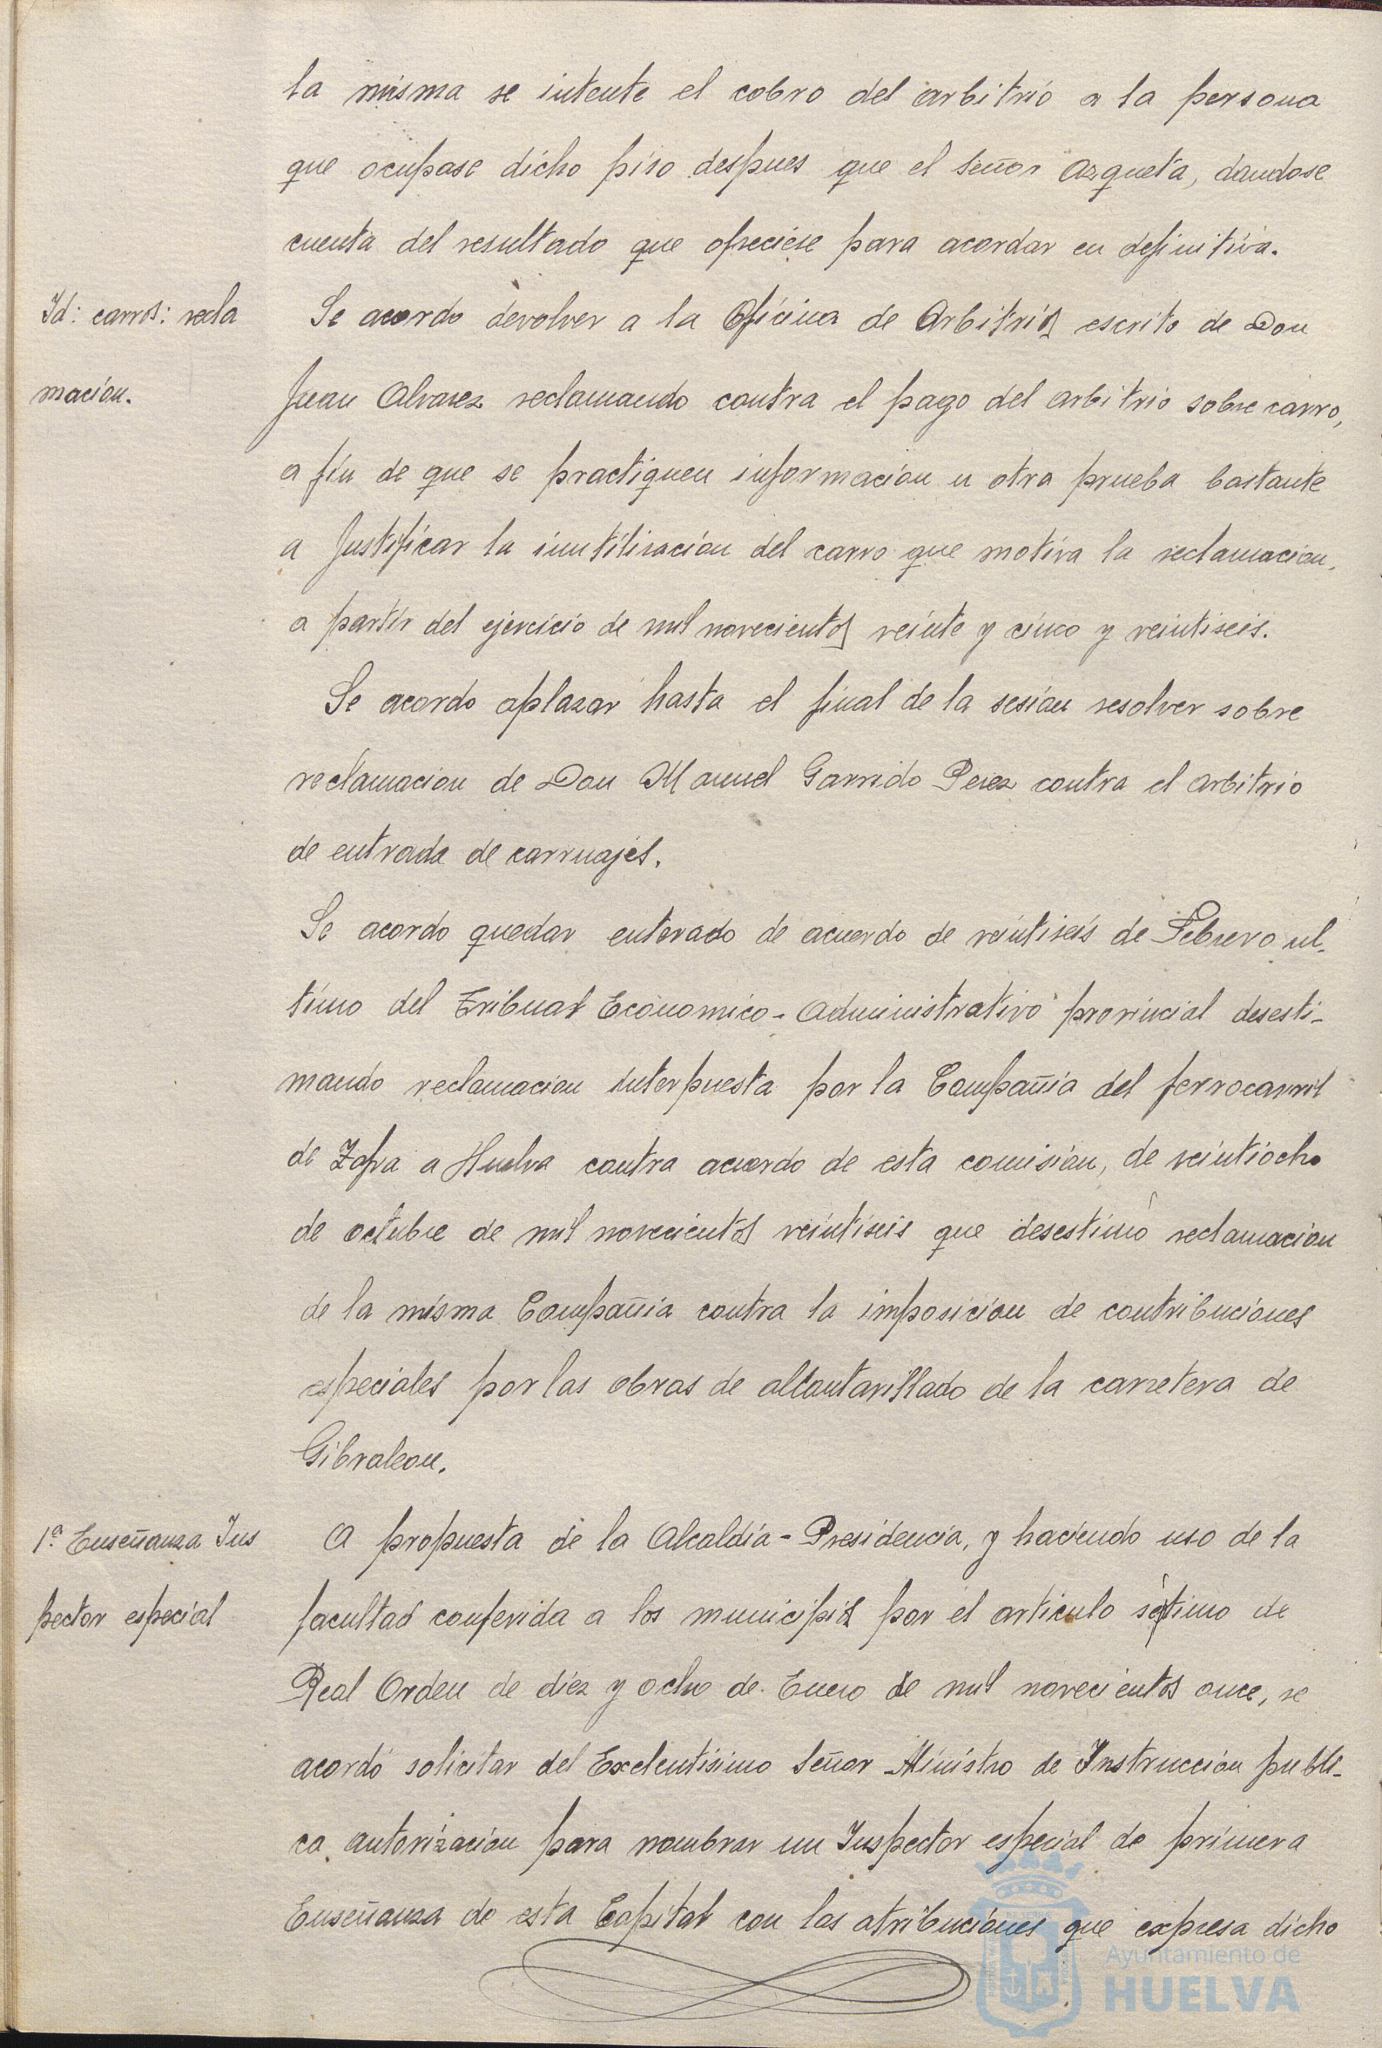 la misma se intente el cobro del arbitrio a la persona
que ocupase dicho piso despues que el señor Azqueta, dandose
cuenta del resultado que ofreciese para acordar en definitiva.
Id: carros: recla
macion.
Se acordo devolver a la Oficina de Arbitrios escrito de Don
Juan Alvarez reclamando contra el pago del arbitrio sobre carro,
a fin de que se practiquen informacion u otra prueba bastante
a justificar la inutilizacion del carro que motiva la reclamacion,
a partir del ejercicio de mil novecientos veinte y cinco y veintiseis.
Se acordo aplazar hasta el final de la sesion resolver sobre
reclamacion de Don Manuel Garrido Perez contra el arbitrio
de entrada de carruajes.
Se acordo quedar enterado de acuerdo de veintiseis de Febrero ul-
timo del Tribunal Economico-Administrativo provincial desesti-
mando reclamacion interpuesta por la Compañia del ferrocarril
de Zafra a Huelva contra acuerdo de esta comision, de veintiocho
de octubre de mil novecientos veintiseis que desestimó reclamacion
de la misma Compañia contra la imposicion de contribuciones
especiales por las obras de alcantarillado de la carretera de
Gibraleon.
1ª Enseñanza Ins
pector especial
A propuesta de la Alcaldia-Presidencia, y haciendo uso de la
facultad conferida a los municipios por el articulo séptimo de
Real Orden de diez y ocho de Enero de mil novecientos once, se
acordó solicitar del Excelentisimo Señor Ministro de Instruccion publi-
ca autorizacion para nombrar un Inspector especial de primera
Enseñanza de esta Capital con las atribuciones que expresa dicho
Ayuntamiento de
HUELVA